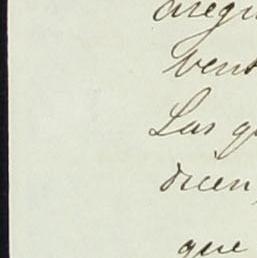 aregu
vent
Las qu
dicen,
que